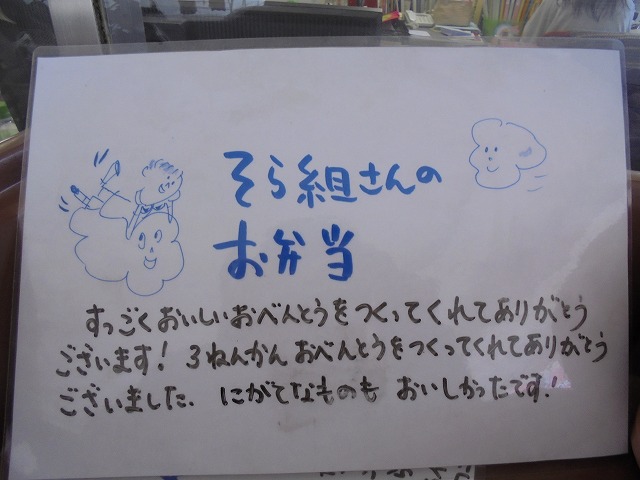 そら組さんの
お弁当
すっごくおいしいおべんとうをつくってくれてありがとう
ございます! 3ねんかん おべんとうをつくってくれてありがとう
ございました. にがてなものも おいしかったです!